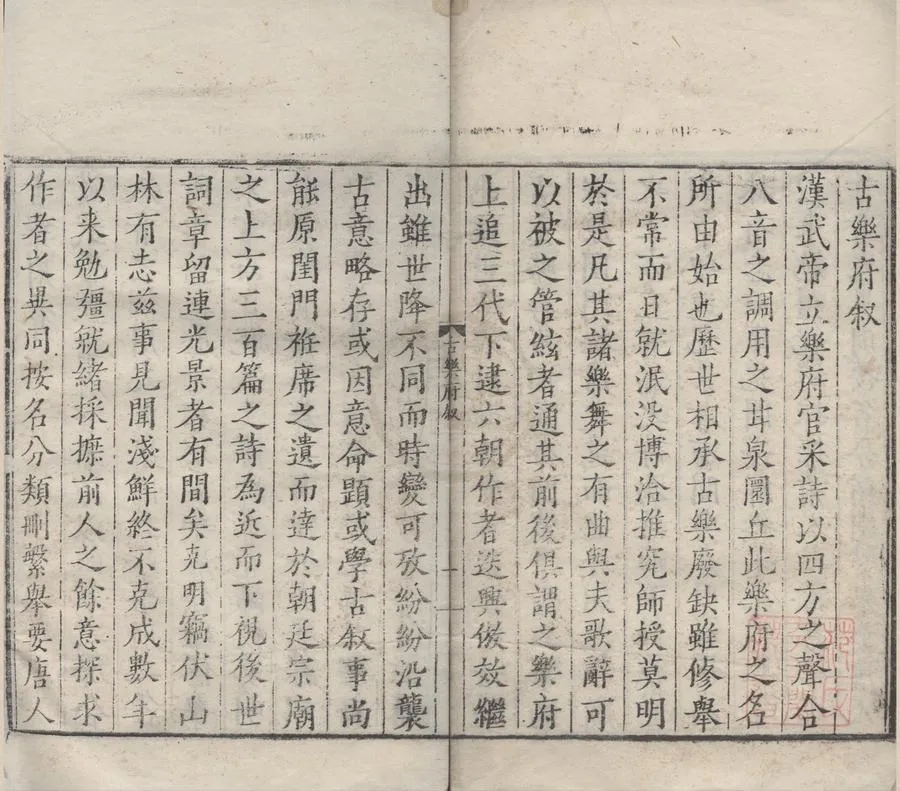 古樂府叙
漢武帝立樂府官采詩以四方之聲合
八音之調用之甘泉圜丘此樂府之名
所由始也歷世相承古樂廢缺雖修舉
不常而日就泯没博洽推究師授莫明
於是凡其諸樂舞之有曲與夫歌辭可
以被之管絃者通其前後俱謂之樂府
上追三代下逮六朝作者迭興倣效繼
古樂府叙
一
出雖世降不同而時變可攷紛紛沿襲
古意略存或因意命題或學古叙事尚
能原閨門袵席之遺而達於朝廷宗廟
之上方三百篇之詩為近而下視後世
詞章留連光景者有間矣克明竊伏山
林有志兹事見聞淺鮮終不克成數年
以来勉彊就緒採摭前人之餘意探求
作者之異同按名分類刪繁舉要唐人